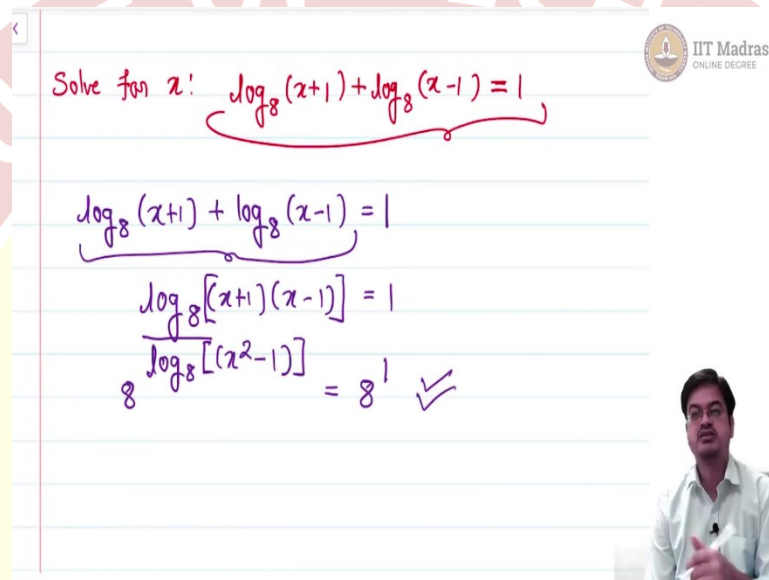 IIT Madras
ONLINE DEGREE
Solve for x: log₈(x+1) + log₈(x-1) = 1
log₈(x+1) + log₈(x-1) = 1
log₈[(x+1)(x-1)] = 1
8^log₈[(x²-1)] = 8¹